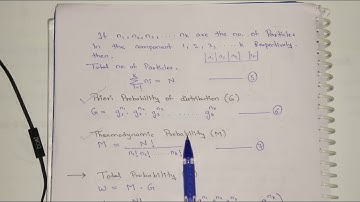 If n₁, n₂, n₃, ... nₖ are the no. of Particles
in the component 1, 2, 3, ... k Respectively.
then, |n₁|n₂| |nₖ|
Total no. of Particles.
Σ nᵢ = N ——— ⑤
i=1
Priori Probability of distribution (G)
G = g₁ⁿ¹ · g₂ⁿ² ........ gₖⁿᵏ ——— ⑥
Thermodynamic Probability (M)
M = N! / n₁! n₂! ... nₖ! ——— ⑦
→ Total Probability
W = M · G